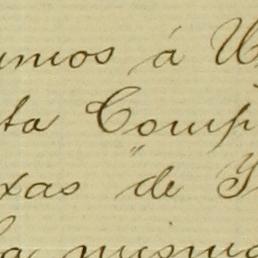 unios á U
ta Comp
xas de
la misma